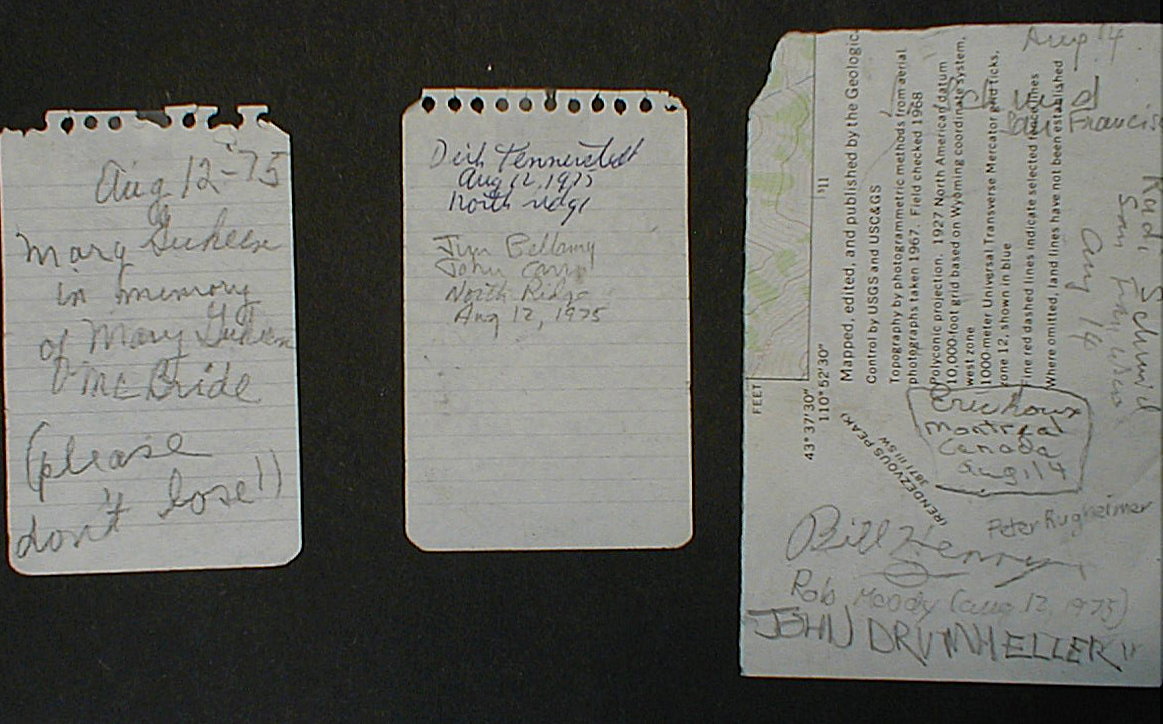 Aug 12-75
Mary
in memory
of Mary
McBride
(please
don't lose!!)
Dirk Tennerstedt
Aug 12, 1975
North ridge
Jim Bellamy
John
North Ridge
Aug 12, 1975
Aug 14
San Francisc
Rudi Schmid
San
Aug 14
Mapped, edited, and published by the Geologic
Control by USGS and USC&GS
Topography by photogrammetric methods from aerial
photographs taken 1967. Field checked 1968
Polyconic projection. 1927 North American datum
10,000-foot grid based on Wyoming coordinate system,
west zone
1000-meter Universal Transverse Mercator grid ticks,
zone 12, shown in blue
Fine red dashed lines indicate selected fence lines
Where omitted, land lines have not been established
FEET
43°37'30"
110°52'30"
511
(RENDEZVOUS PEAK)
3871 III SW
Montreal
Canada
Aug 14
Peter Rugheimer
Bill Henry
Rob Moody (aug 12, 1975)
JOHN DRUMHELLER"